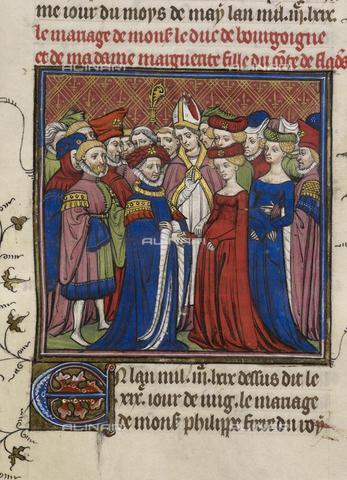 me iour du moys de may lan mil. iii. lxix.
le mariage de mons̄ le duc de bourgoigne
et de ma dame marguerite fille du cōte de flādˢ
ALINARI
ALINARI
ALINARI
En lan mil. iii. lxix dessus dit le
xix. iour de iuig. le mariage
de mons̄ philippe frere du roy